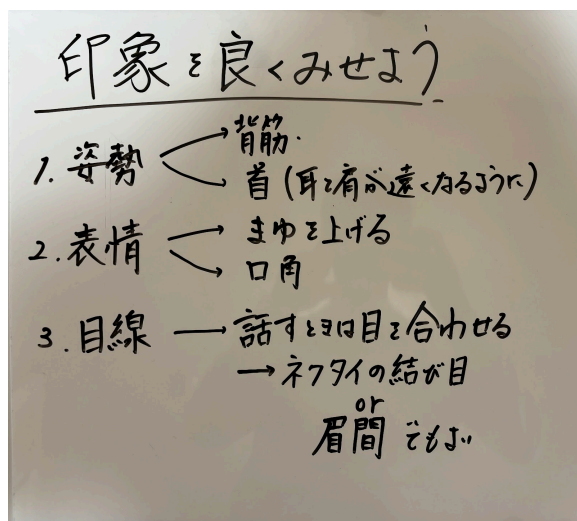 印象を良くみせよう
1. 姿勢 → 背筋.
→ 首 (耳と肩が遠くなるように)
2. 表情 → まゆを上げる
→ 口角
3. 目線 → 話すときは目を合わせる
→ ネクタイの結び目
or
眉間 でもよい